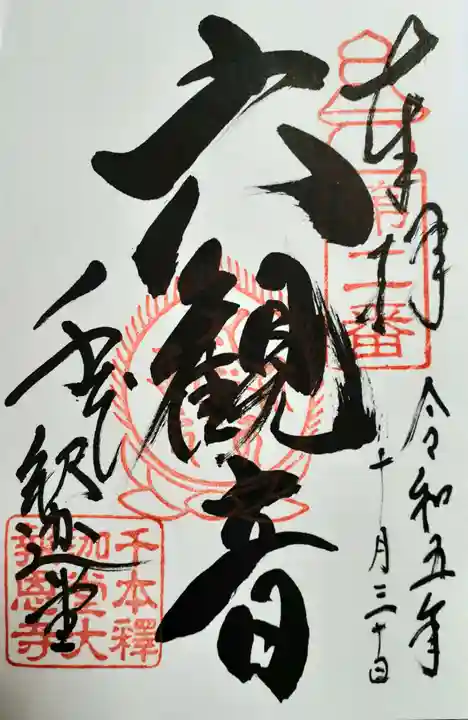 奉拝
第十二番
令和五年
十月三十日
六観音
千本釈迦堂
千本釋
迦堂大
報恩寺